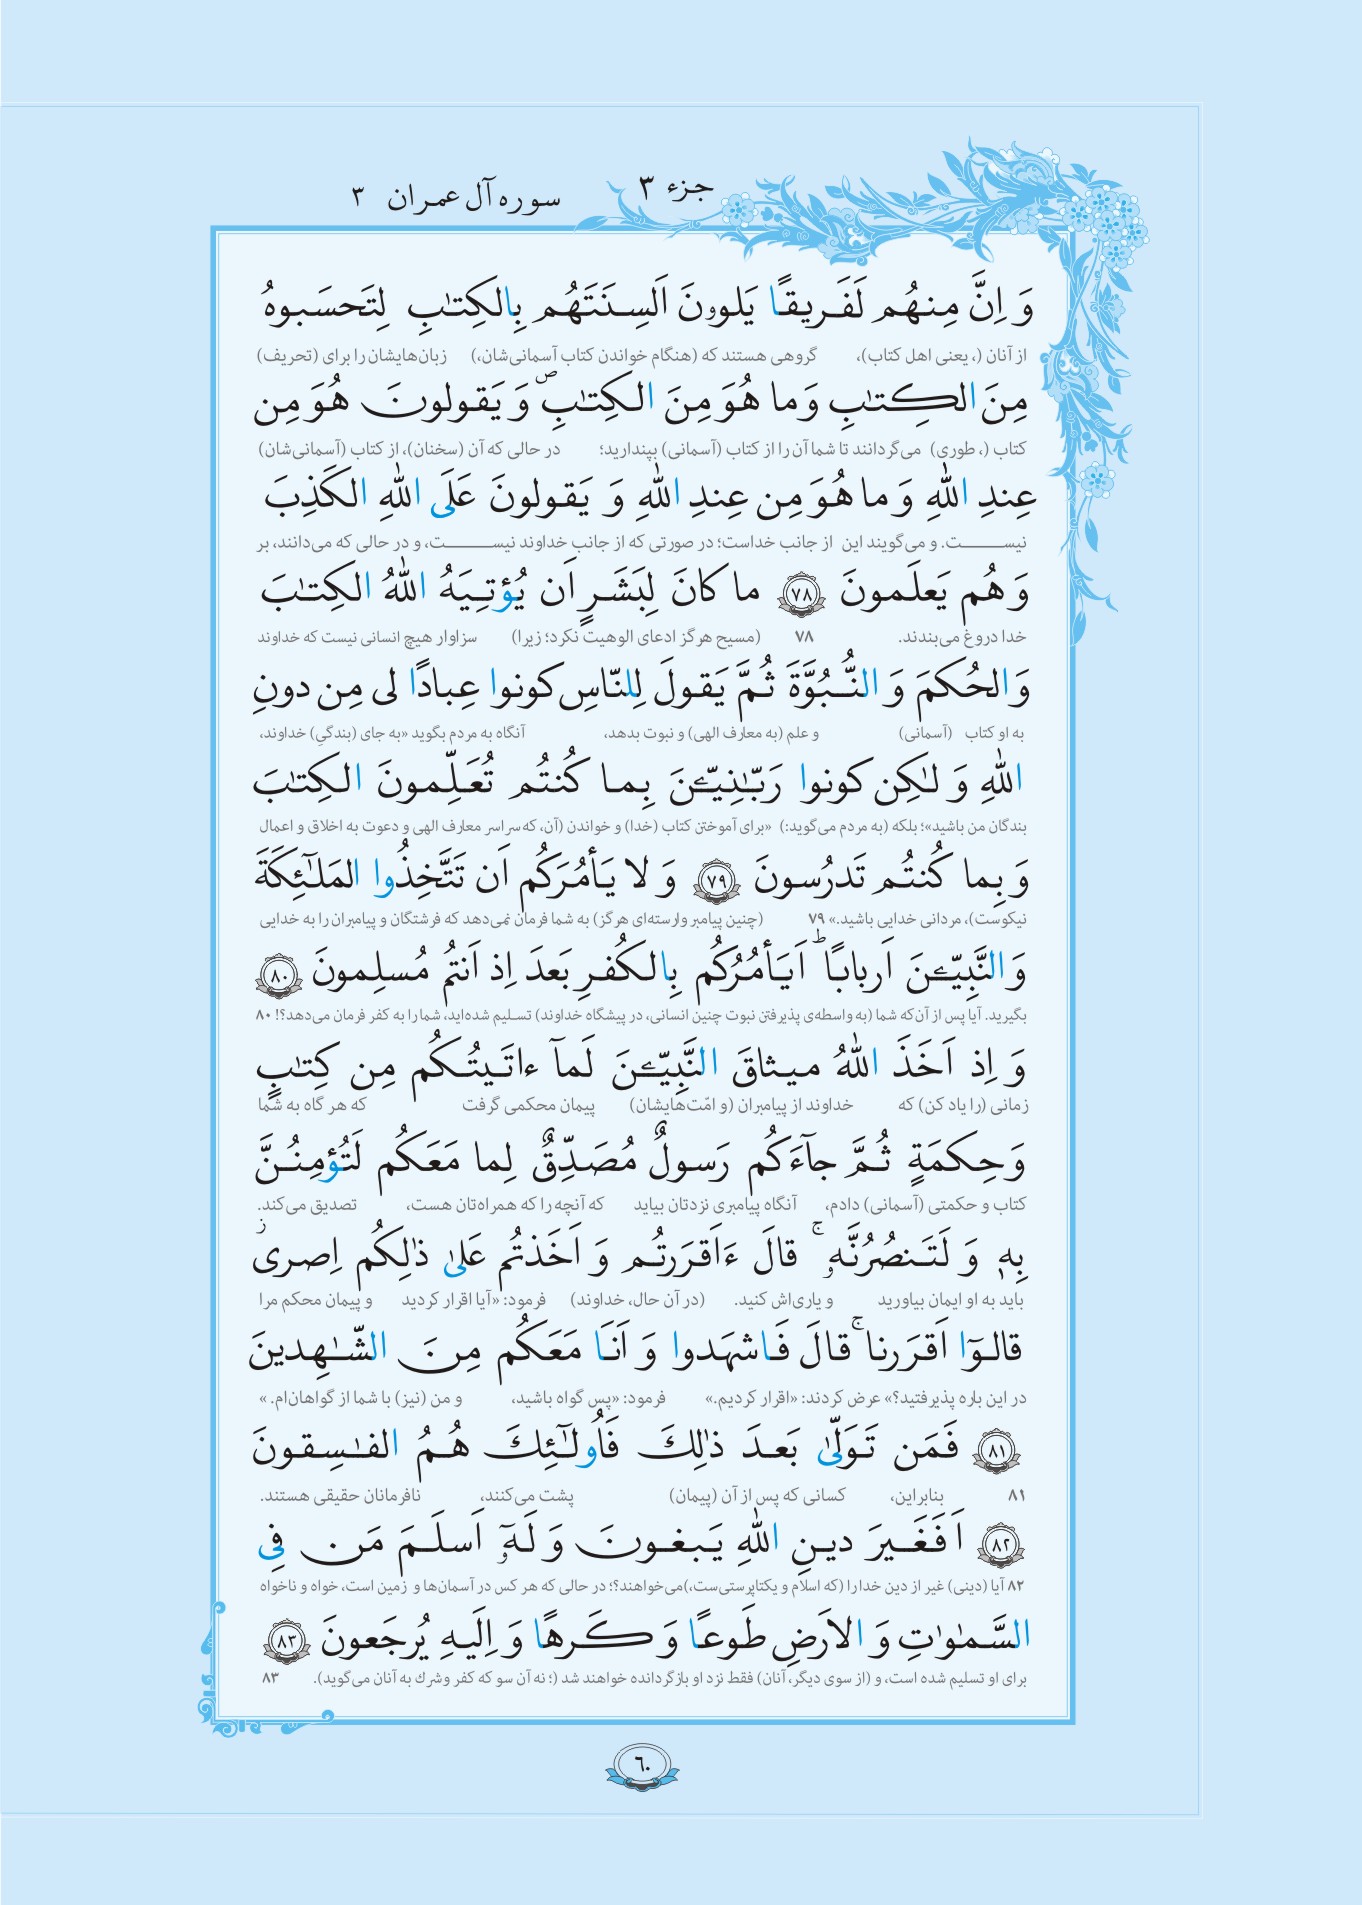 جزء ۳
سوره آل عمران ۳
وَ اِنَّ مِنهُم لَفَريقًا يَلوۥنَ اَلسِنَتَهُم بِالكِتٰبِ لِتَحسَبوهُ
از آنان (، یعنی اهل کتاب)، گروهی هستند که (هنگام خواندن کتاب آسمانی‌شان،) زبان‌هایشان را برای (تحریف)
مِنَ الكِتٰبِ وَ ما هُوَ مِنَ الكِتٰبِ ۖ وَ يَقولونَ هُوَ مِن
کتاب (، طوری) می‌گردانند تا شما آن را از کتاب (آسمانی) بپندارید؛ در حالی که آن (سخنان)، از کتاب (آسمانی‌شان)
عِندِ اللّٰهِ وَ ما هُوَ مِن عِندِ اللّٰهِ وَ يَقولونَ عَلَى اللّٰهِ الكَذِبَ
نیســـــت. و می‌گویند این از جانب خداست؛ در صورتی که از جانب خداوند نیســـــت، و در حالی که می‌دانند، بر
وَ هُم يَعلَمونَ ﴿۷۸﴾ ما كانَ لِبَشَرٍ اَن يُؤتِيَهُ اللّٰهُ الكِتٰبَ
خدا دروغ می‌بندند. ۷۸ (مسیح هرگز ادعای الوهیت نکرد؛ زیرا) سزاوار هیچ انسانی نیست که خداوند
وَ الحُكمَ وَ النُّبُوَّةَ ثُمَّ يَقولَ لِلنّاسِ كونوا عِبادًا لى مِن دونِ
به او کتاب (آسمانی) و علم (به معارف الهی) و نبوت بدهد، آنگاه به مردم بگوید «به جای (بندگیِ) خداوند،
اللّٰهِ وَ لٰكِن كونوا رَبّٰنِيّـۧنَ بِما كُنتُم تُعَلِّمونَ الكِتٰبَ
بندگان من باشید»؛ بلکه (به مردم می‌گوید:) «برای آموختن کتاب (خدا) و خواندن (آن، که سراسر معارف الهی و دعوت به اخلاق و اعمال
وَ بِما كُنتُم تَدرُسونَ ﴿۷۹﴾ وَ لا يَأمُرَكُم اَن تَتَّخِذُوا المَلٰٓئِكَةَ
نیکوست)، مردانی خدایی باشید.» ۷۹ (چنین پیامبر وارسته‌ای هرگز) به شما فرمان نمی‌دهد که فرشتگان و پیامبران را به خدایی
وَ النَّبِيّـۧنَ اَربابًا ۗ اَيَأمُرُكُم بِالكُفرِ بَعدَ اِذ اَنتُم مُسلِمونَ ﴿۸۰﴾
بگیرید. آیا پس از آن‌که شما (به واسطه‌ی پذیرفتن نبوت چنین انسانی، در پیشگاه خداوند) تسلیم شده‌اید، شما را به کفر فرمان می‌دهد؟! ۸۰
وَ اِذ اَخَذَ اللّٰهُ ميثاقَ النَّبِيّـۧنَ لَمآ ءاتَيتُكُم مِن كِتٰبٍ
زمانی (را یاد کن) که خداوند از پیامبران (و امّت‌هایشان) پیمان محکمی گرفت که هر گاه به شما
وَ حِكمَةٍ ثُمَّ جآءَكُم رَسولٌ مُصَدِّقٌ لِما مَعَكُم لَتُؤمِنُنَّ
کتاب و حکمتی (آسمانی) دادم، آنگاه پیامبری نزدتان بیاید که آنچه را که همراه‌تان هست، تصدیق می‌کند.
بِهٖ وَ لَتَنصُرُنَّهٗ ۚ قالَ ءَاَقرَرتُم وَ اَخَذتُم عَلىٰ ذٰلِكُم اِصرى ز
باید به او ایمان بیاورید و یاری‌اش کنید. (در آن حال، خداوند) فرمود: «آیا اقرار کردید و پیمان محکم مرا
قالوٓا اَقرَرنا ۚ قالَ فَاشهَدوا وَ اَنَا مَعَكُم مِنَ الشّٰهِدينَ
در این باره پذیرفتید؟» عرض کردند: «اقرار کردیم.» فرمود: «پس گواه باشید، و من (نیز) با شما از گواهان‌ام.»
﴿۸۱﴾ فَمَن تَوَلّىٰ بَعدَ ذٰلِكَ فَاُولٰٓئِكَ هُمُ الفٰسِقونَ
۸۱ بنابراین، کسانی که پس از آن (پیمان) پشت می‌کنند، نافرمانان حقیقی هستند.
﴿۸۲﴾ اَفَغَيرَ دينِ اللّٰهِ يَبغونَ وَ لَهٗٓ اَسلَمَ مَن فِى
۸۲ آیا (دینی) غیر از دین خدا را (که اسلام و یکتاپرستی‌ست،) می‌خواهند؟؛ در حالی که هر کس در آسمان‌ها و زمین است، خواه و ناخواه
السَّمٰوٰتِ وَ الاَرضِ طَوعًا وَ كَرهًا وَ اِلَيهِ يُرجَعونَ ﴿۸۳﴾
برای او تسلیم شده است، و (از سوی دیگر، آنان) فقط نزد او بازگردانده خواهند شد (؛ نه آن سو که کفر وشرك به آنان می‌گوید). ۸۳
٦٠